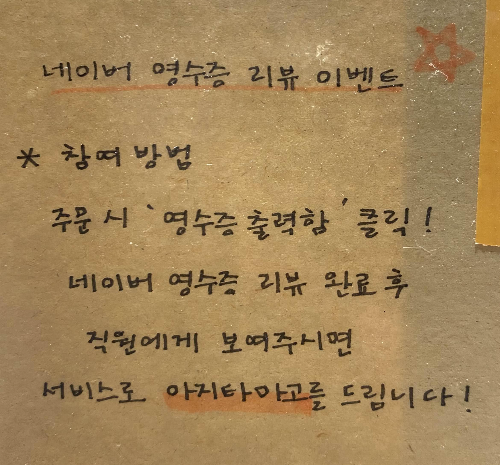 네이버 영수증 리뷰 이벤트
* 참여 방법
주문 시 '영수증 출력함' 클릭!
네이버 영수증 리뷰 완료 후
직원에게 보여주시면
서비스로 아지타마고를 드립니다!